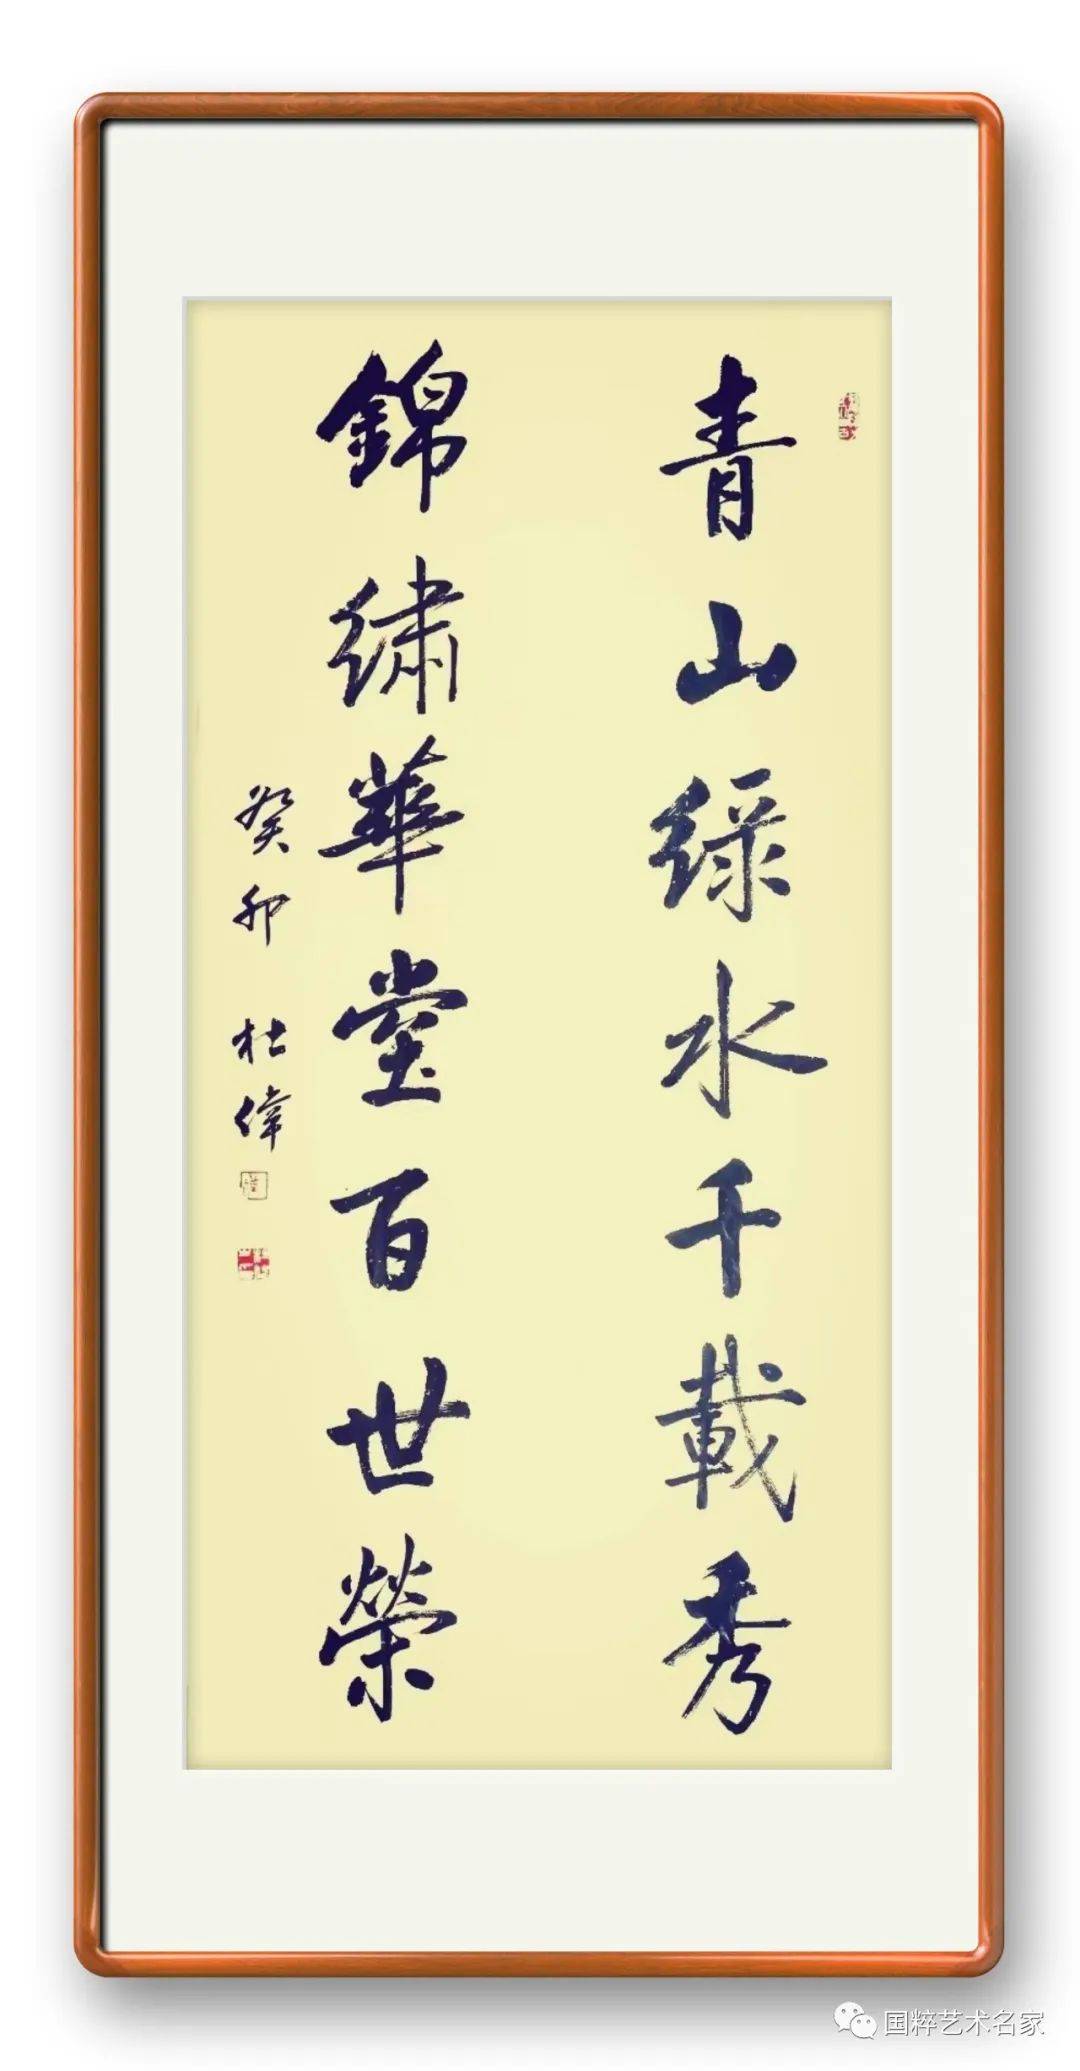 青山緑水千載秀
錦繡華堂百世榮
癸卯 杜偉
国粹艺术名家